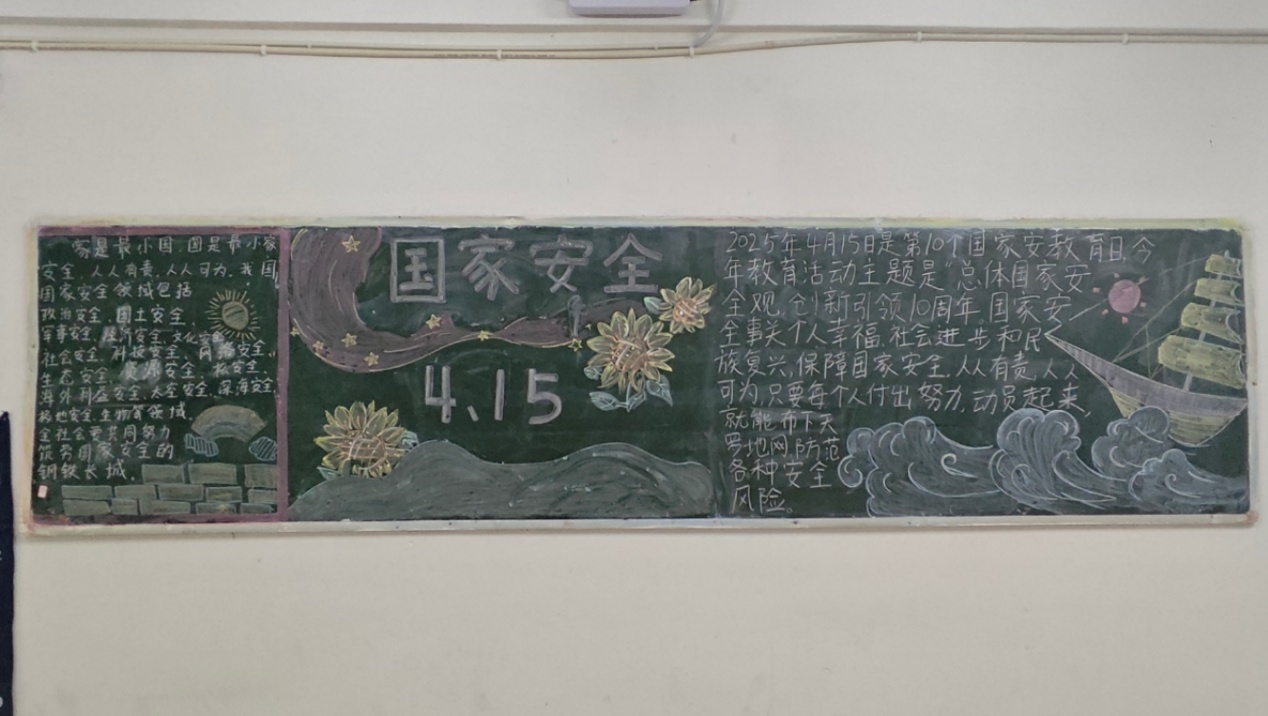 家是最小国,国是最小家
安全,人人有责,人人可为,我国
国家安全领域包括
政治安全、国土安全、
军事安全、经济安全、文化安全、
社会安全、科技安全、网络安全、
生态安全、资源安全、核安全、
海外利益安全、太空安全、深海安全、
极地安全、生物等领域
全社会要共同努力
筑劳国家安全的
钢铁长城。
国家安全
4.15
2025年4月15日是第10个国家安教育日,今
年教育活动主题是,总体国家安
全观,创新引领10周年,国家安
全事关个人幸福,社会进步和民
族复兴,保障国家安全,人人有责,人人
可为,只要每个人付出努力,动员起来,
就能布下天
罗地网,防范
各种安全
风险。